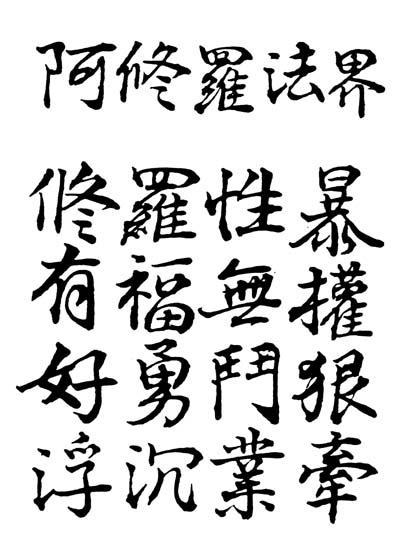 阿修羅法界
修羅性暴
有福無權
好勇鬥狠
浮沉業牽